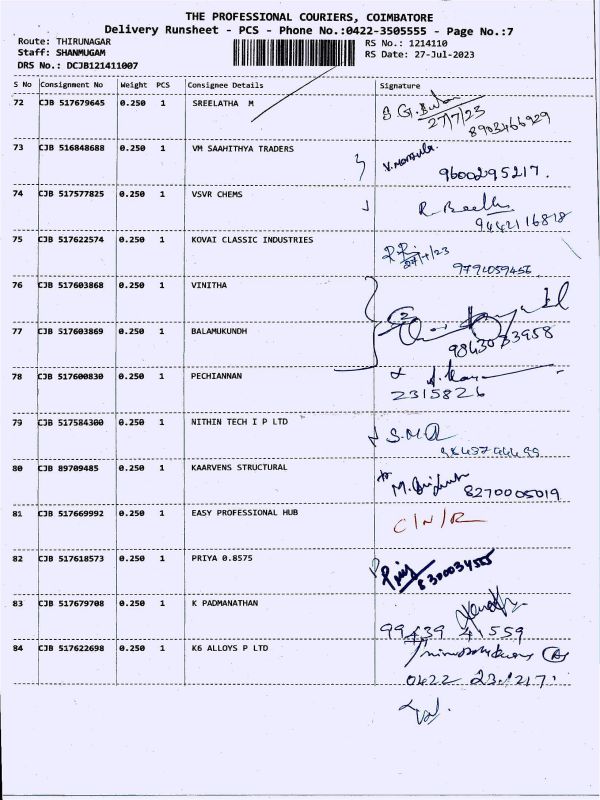 THE PROFESSIONAL COURIERS, COIMBATORE
Delivery Runsheet - PCS - Phone No.:0422-3505555 - Page No.:7
Route: THIRUNAGAR RS No.: 1214110
Staff: SHANMUGAM RS Date: 27-Jul-2023
DRS No.: DCJB121411007
S No Consignment No Weight PCS Consignee Details Signature
72 CJB 517679645 0.250 1 SREELATHA M
27/7/23
8903466929
73 CJB 516848688 0.250 1 VM SAAHITHYA TRADERS
9600295217.
74 CJB 517577825 0.250 1 VSVR CHEMS
9442116818
75 CJB 517622574 0.250 1 KOVAI CLASSIC INDUSTRIES
9791059456
76 CJB 517603868 0.250 1 VINITHA
77 CJB 517603869 0.250 1 BALAMUKUNDH
9843033958
78 CJB 517600830 0.250 1 PECHIANNAN
2315826
79 CJB 517584300 0.250 1 NITHIN TECH I P LTD
80 CJB 89709485 0.250 1 KAARVENS STRUCTURAL
8270005019
81 CJB 517669992 0.250 1 EASY PROFESSIONAL HUB
C/N/R
82 CJB 517618573 0.250 1 PRIYA 0.8575
83 CJB 517679708 0.250 1 K PADMANATHAN
99439 41559
84 CJB 517622698 0.250 1 K6 ALLOYS P LTD
0422 231217